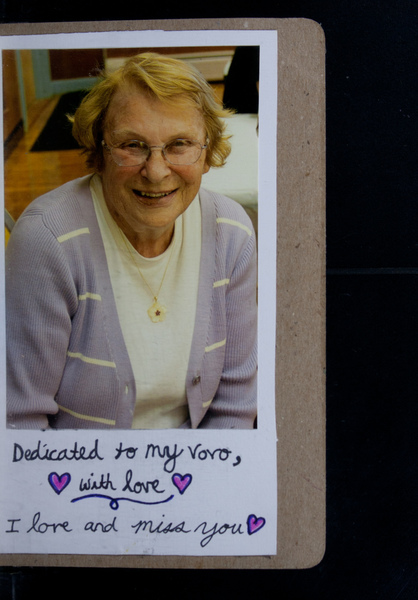 Dedicated to my vovo,
with love
I love and miss you